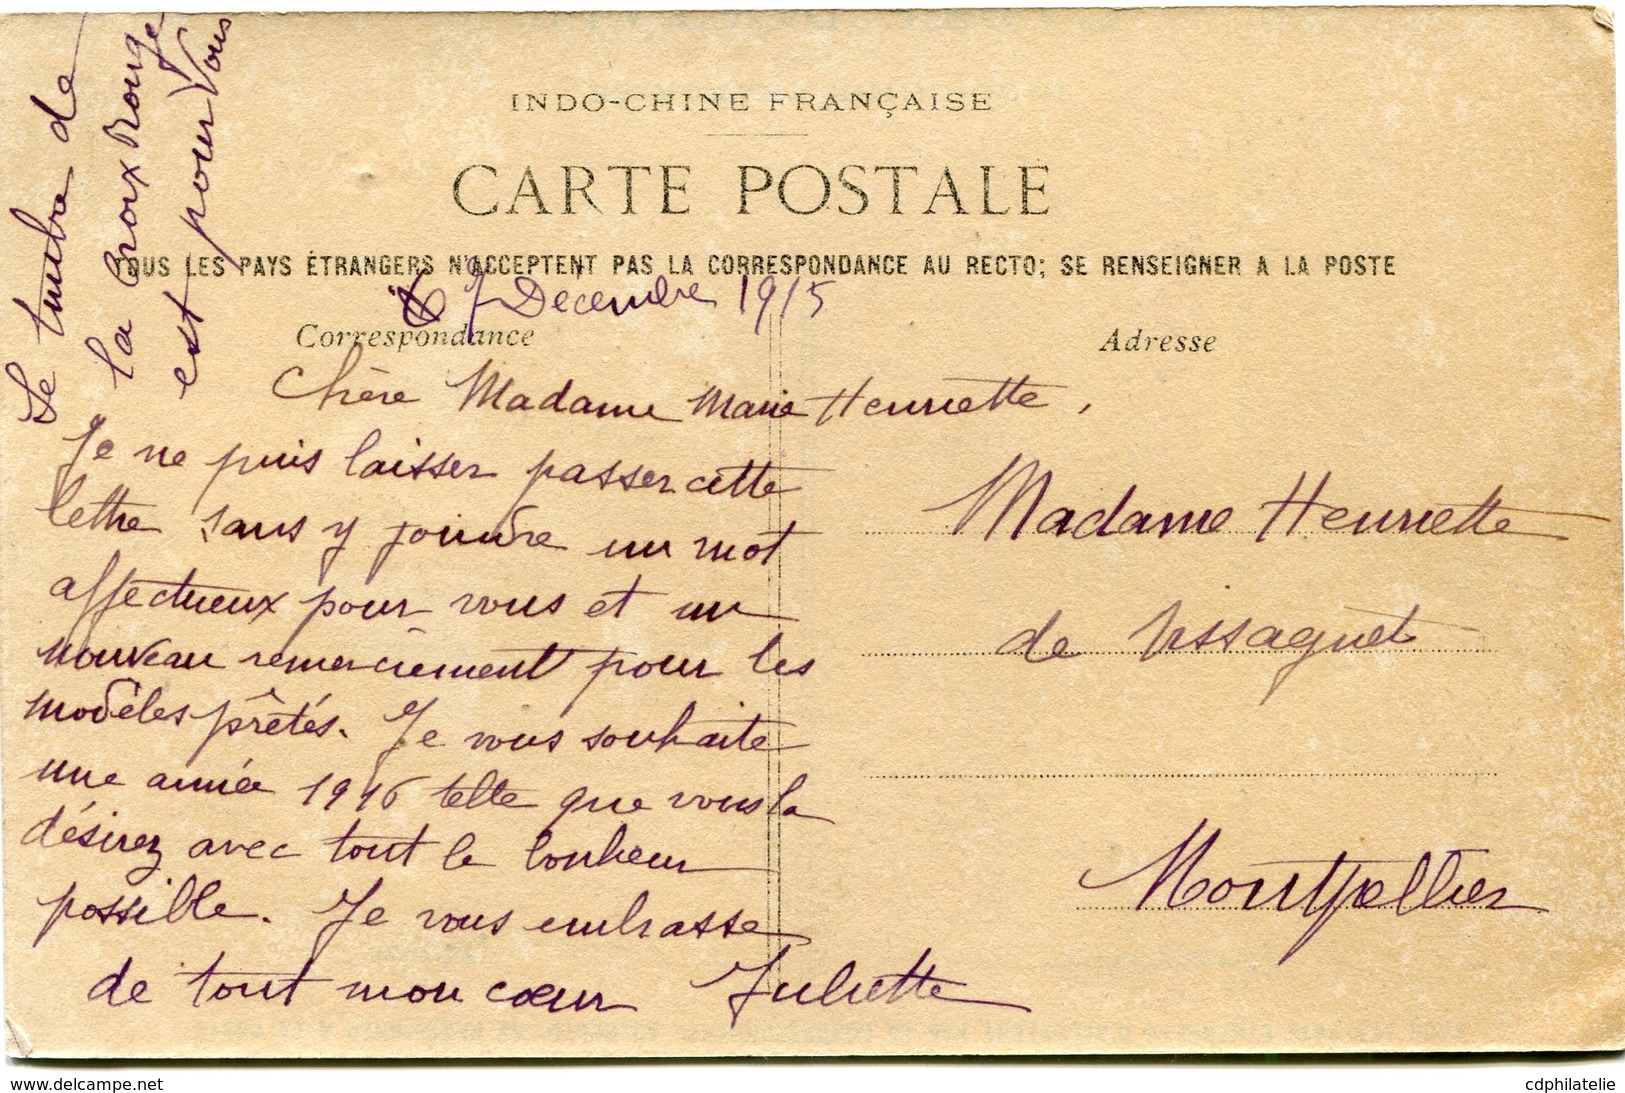 Le timbre de
la Croix Rouge
est pour vous
INDO-CHINE FRANÇAISE
CARTE POSTALE
TOUS LES PAYS ÉTRANGERS N'ACCEPTENT PAS LA CORRESPONDANCE AU RECTO; SE RENSEIGNER A LA POSTE
7 Décembre 1915
Correspondance
Adresse
Chère Madame Marie Henriette,
Je ne puis laisser passer cette
lettre sans y joindre un mot
affectueux pour vous et un
nouveau remerciement pour les
modèles prêtés. Je vous souhaite
une année 1916 telle que vous la
désirez avec tout le bonheur
possible. Je vous embrasse
de tout mon cœur Juliette
Madame Henriette
de
Montpellier
www.delcampe.net
cdphilatelie